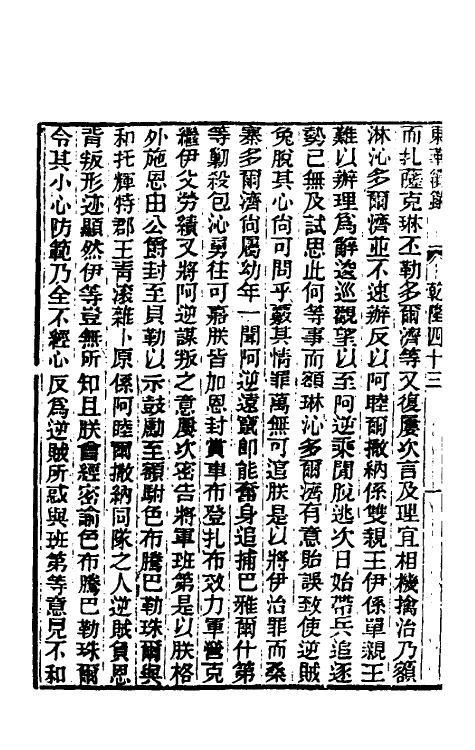 東華續錄 乾隆四十三
而扎薩克琳丕勒多爾濟等又復屢次言及理宜相機擒治乃額
琳沁多爾濟並不速辦反以阿睦爾撒納係雙親王伊係單親王
難以辦理爲辭逡巡觀望以至阿逆乘閒脫逃次日始帶兵追逐
勢已無及試思此何等事而額琳沁多爾濟有意貽誤致使逆賊
免脫其心尙可問乎覈其情罪萬無可逭朕是以將伊治罪而桑
寨多爾濟尙屬幼年一聞阿逆遠竄卽能奮身追捕巴雅爾什第
等勦殺包沁勇往可嘉朕皆加恩封賞車布登扎布效力軍營克
繼伊父勞績又將阿逆謀叛之意屢次密告將軍班第是以朕格
外施恩由公爵封至貝勒以示鼓勵至額駙色布騰巴勒珠爾與
和托輝特郡王靑滾雜卜原係阿睦爾撒納同隊之人逆賊負恩
背叛形迹顯然伊等豈無所知且朕曾經密諭色布騰巴勒珠爾
令其小心防範乃全不經心反爲逆賊所惑與班第等意見不和